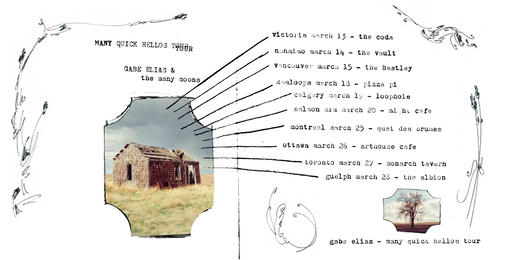 MANY QUICK HELLOS TOUR
TOUR
GABE ELIAS &
the many moons
victoria march 13 - the coda
nanaimo march 14 - the vault
vancouver march 15 - the heatley
kamloops march 18 - pizza pi
calgary march 19 - loophole
salmon arm march 20 - night cafe
montreal march 25 - quai des brumes
ottawa march 26 - arthouse cafe
toronto march 27 - monarch tavern
guelph march 28 - the albion
gabe elias - many quick hellos tour